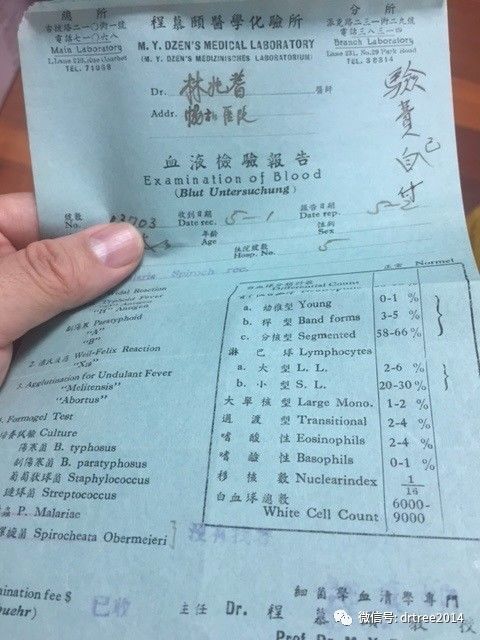 總所
古拔路二一〇街一號
電話七一〇六八
Main Laboratory
TEL. 71068
程慕頤醫學化驗所
M. Y. DZEN'S MEDICAL LABORATORY
(M. Y. DZEN'S MEDIZINISCHES LABORATORIUM)
分所
派克路二三一街二九號
電話三八三一四
Branch Laboratory
L.Lane 231, No.29 Park Road
TEL. 38314
Dr. 林兆耆 醫師
Addr.
驗費自
血液檢驗報告
Examination of Blood
(Blut Untersuchung)
號數 收到日期 報告日期
No. 13703 Date rec. 5-1 Date rep. 5
年齡 性別
Age Sex
住院號數
Hosp. No.
Widal Reaction
Typhoid Fever
"H" Antigen
副傷寒 Paratyphoid
"A"
"B"
2. Weil-Felix Reaction
3. Agglutination for Undulant Fever
"Melitensis"
"Abortus"
Formogel Test
培養試驗 Culture
傷寒菌 B. typhosus
副傷寒菌 B. paratyphosus
葡萄狀球菌 Staphylococcus
連球菌 Streptococcus
P. Malariae
Spirochaeta Obermeieri
正常 Normel
Differential Count
a. 幼稚型 Young 0-1 %
b. 桿型 Band forms 3-5 %
c. 分核型 Segmented 58-66 %
淋巴球 Lymphocytes
a. 大型 L. L. 2-6 %
b. 小型 S. L. 20-30 %
大單核型 Large Mono. 1-2 %
過渡型 Transitional 2-4 %
嗜酸性 Eosinophils 2-4 %
嗜鹼性 Basophils 0-1 %
移核數 Nuclearindex 1/16
白血球總數
White Cell Count 6000-9000
mination fee $
buehr) 已收
細菌學血清學專門
主任 Dr. 程慕頤
微信号: drtree2014